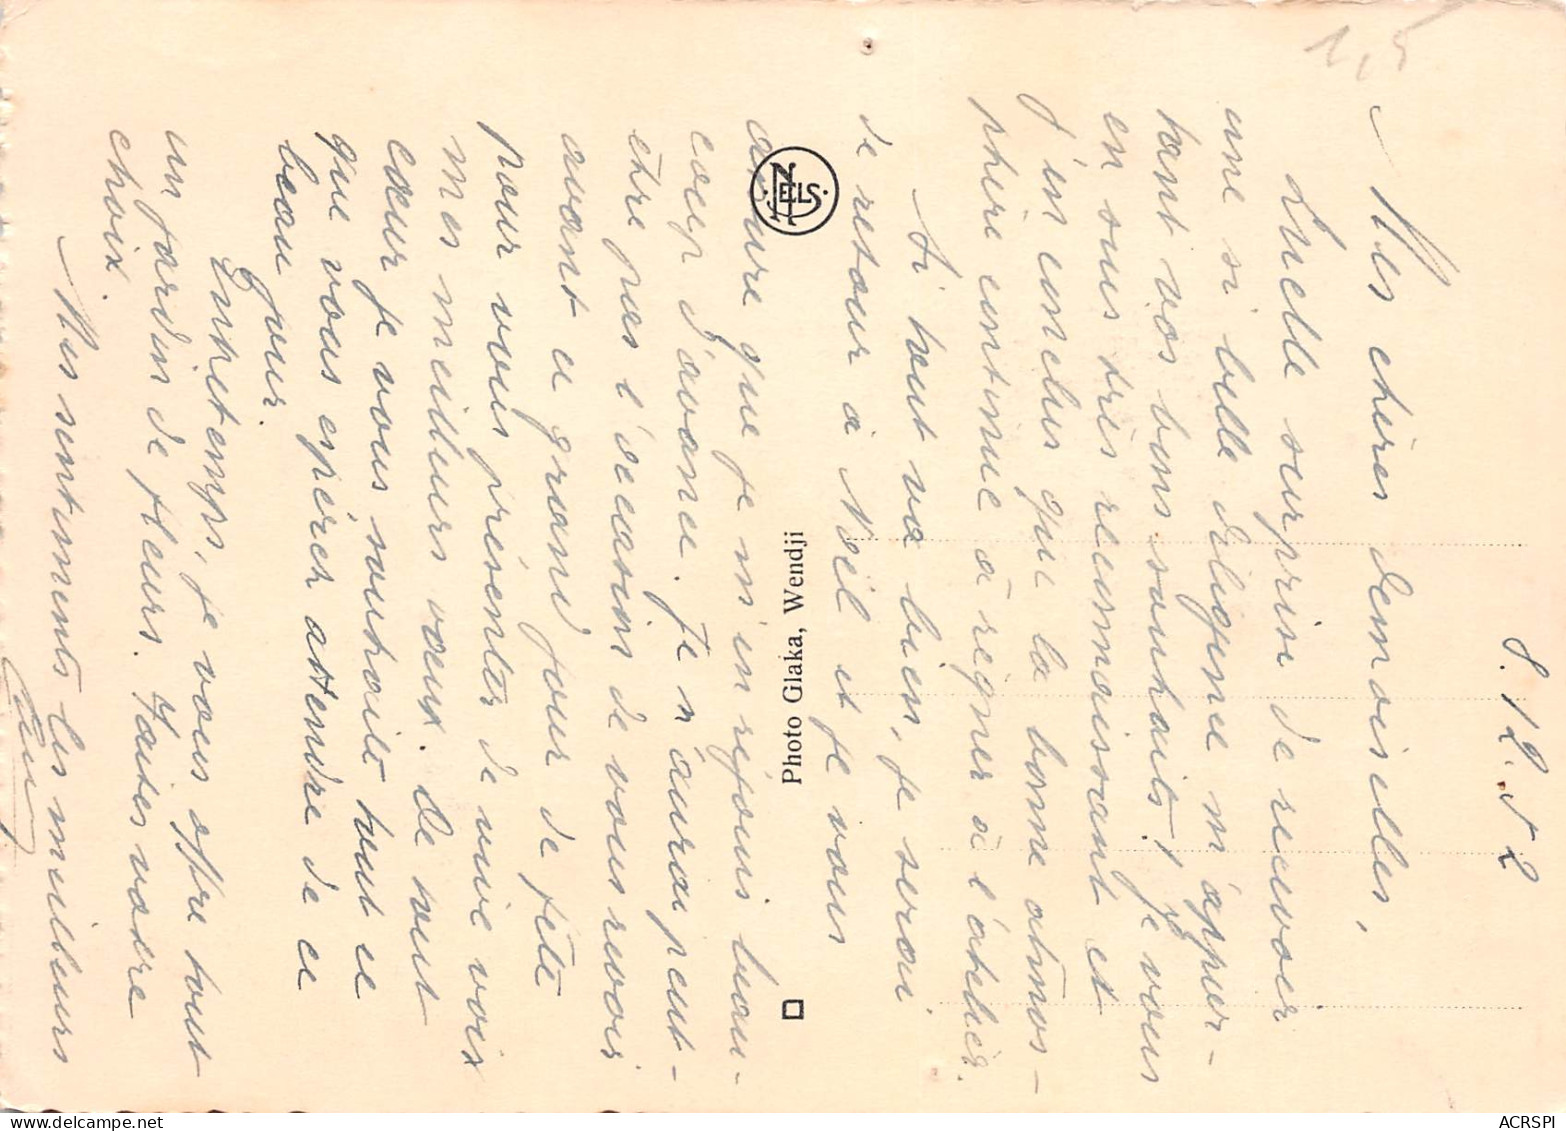 1,5
8.12.52
Mes chères demoiselles,
Quelle surprise de recevoir
une si belle délégunce m'appor-
tant vos bons souhaits! je vous
en suis très reconnaissant et
j'en conclus que la bonne atmos-
phère continue à régner à l'atelier.
Si tout va bien, je serai
de retour à Noël et je vous
assure que je m'en réjouis beau-
coup d'avance. Je n'aurai peut-
être pas l'occasion de vous revoir
avant ce grand jour de fête
pour vous présenter de vive voix
mes meilleurs vœux. De tout
cœur je vous souhaite tout ce
que vous espérez attendre de ce
beau jour.
Entretemps, je vous offre tout
un jardin de fleurs. Faites votre
choix.
Mes sentiments les meilleurs
NELS
Photo Glaka, Wendji
delcampe.net
ACRSPI